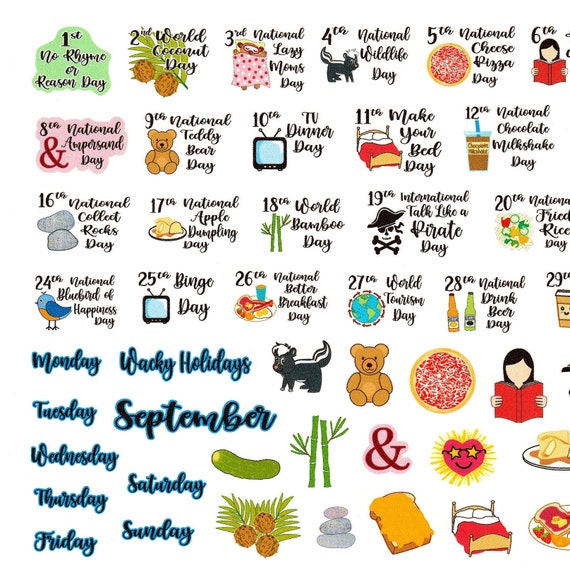 1st
No Rhyme
or
Reason Day
2nd World
Coconut
Day
3rd National
Lazy
Moms
Day
4th National
Wildlife
Day
5th National
Cheese
Pizza
Day
6th
8th National
& Ampersand
Day
9th National
Teddy
Bear
Day
10th TV
Dinner
Day
11th Make
Your
Bed
Day
12th National
Chocolate
Milkshake
Day
Chocolate
Milkshake
16th National
Collect
Rocks
Day
17th National
Apple
Dumpling
Day
18th World
Bamboo
Day
19th International
Talk Like a
Pirate
Day
20th National
Fried
Rice
Day
24th National
Bluebird of
Happiness
Day
25th Binge
Day
26th National
Better
Breakfast
Day
27th World
Tourism
Day
28th National
Drink
Beer
Day
29th
Monday
Wacky Holidays
Tuesday
September
Wednesday
&
Thursday
Saturday
Friday
Sunday